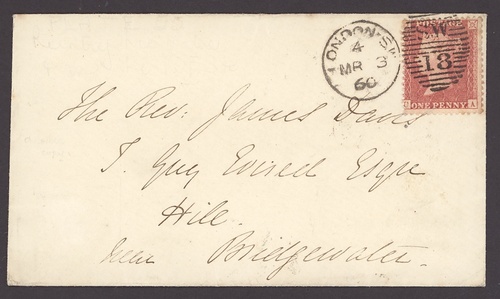 LONDON-SW
4
MR 3
60
POSTAGE
SW
18
A
ONE PENNY
The Rev: James Davis
T. Guy Evered Esqre
Hill
near Bridgewater